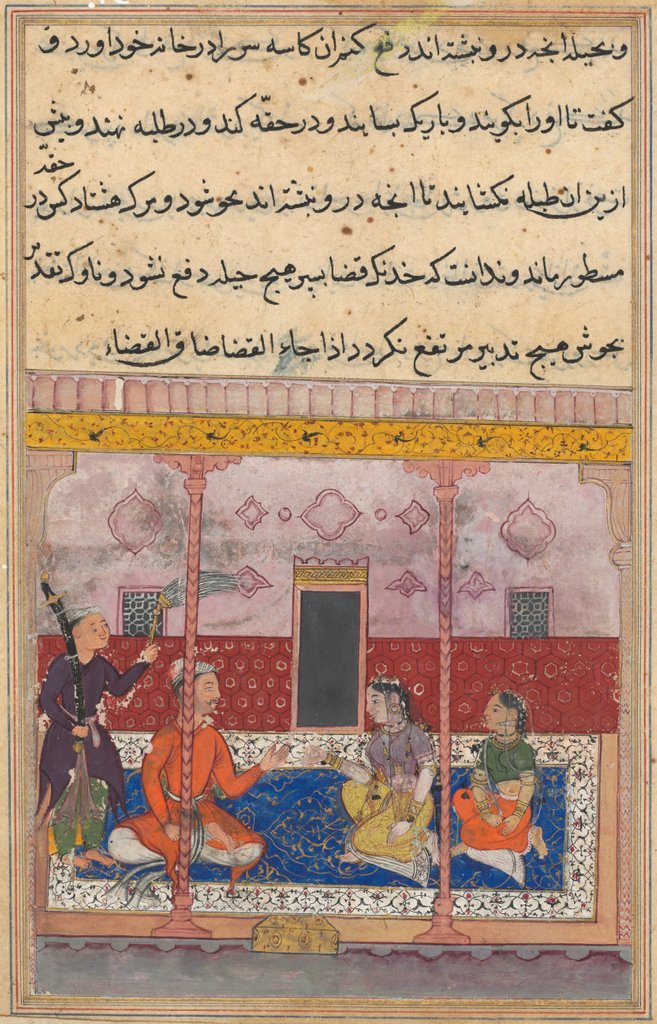 و بحیله انچه درو نبشته اند رفع کنم ان کاسه سر را در خانه خود اورد و
کفت تا او را بکوبند و باریک بسایند و در حقه کنند و در طبله نهند و پیش
حقه
ازین ان طبله نکشایند تا انچه درو نبشته اند محو شود و مرک هشتاد کس در
مسطور ماند و ندانست که خدنک قضا بسپر هیچ حیله دفع نشود و ناوک تقدیر
بجوش هیچ تدبیر مرتفع نکردد اذا جاء القضا ضاق الفضاء